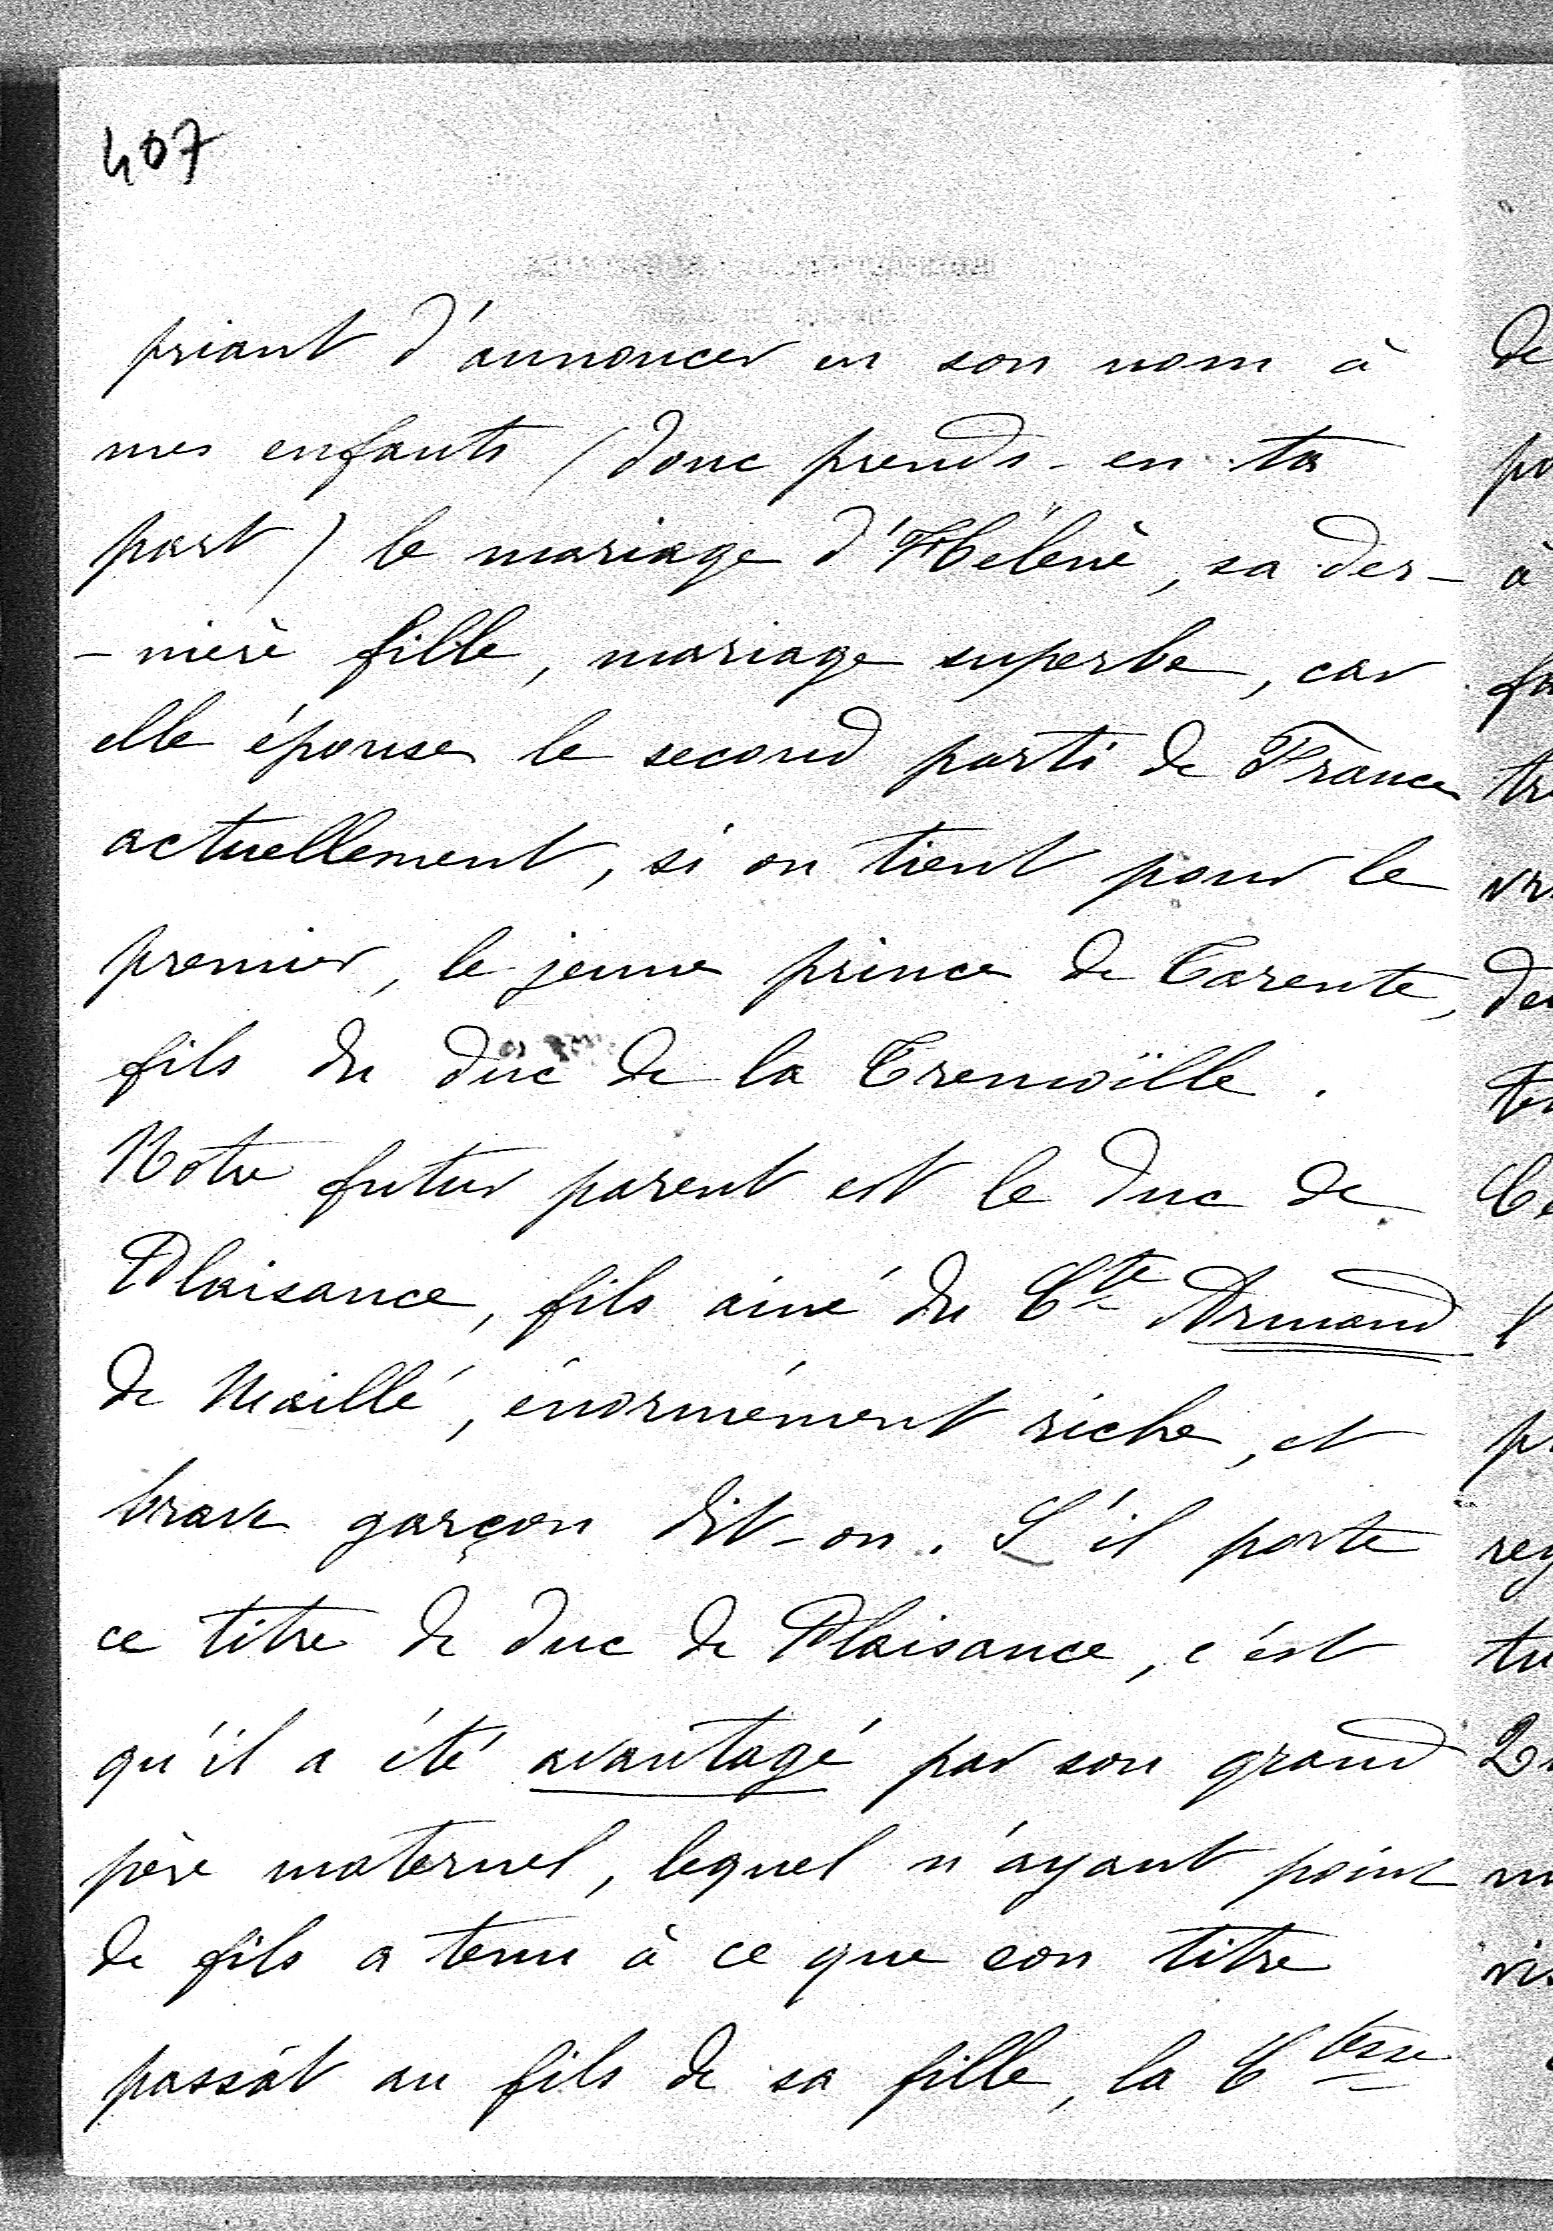 407
priant d'annoncer en son nom à
mes enfants (donc prends-en ta
part) le mariage d'Hélène, sa der-
-nière fille, mariage superbe, car
elle épouse le second parti de France
actuellement, si on tient pour le
premier, le jeune prince de Tarente,
fils du duc de la Tremoïlle.
Notre futur parent est le duc de
Plaisance, fils ainé du Cte Armand
de Maillé, énormément riche, et
brave garçon dit-on. S'il porte
ce titre de duc de Plaisance, c'est
qu'il a été avantagé par son grand
père maternel, lequel n'ayant point
de fils a tenu à ce que son titre
passât au fils de sa fille, la Ctesse